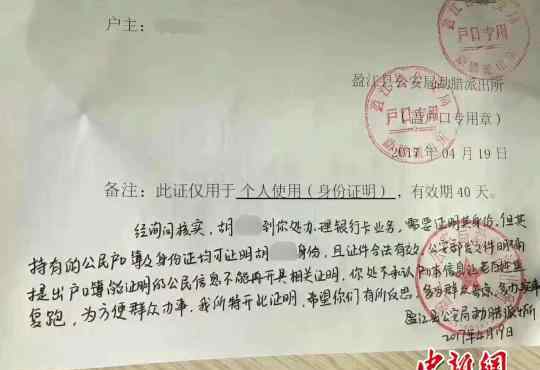 户主：
户口专用
盈江县公安局勐腊派出所
（盖户口专用章）
户口专用
2017年04月19日
备注：此证仅用于 个人使用（身份证明），有效期40天。
经询问核实，胡 到你处办理银行卡业务，需要证明其身份，但其
持有的公民户口簿及身份证均可证明胡 身份，且证件合法有效，公安部发文件明确
提出户口簿能证明的公民信息不能再开具相关证明，你处不承认户口本信息让老百姓重
复跑，为方便群众办事，我所特开此证明，希望你们有所反思，多为群众着想，多办实事
盈江县公安局勐腊派出所
2017年4月19日
中新网